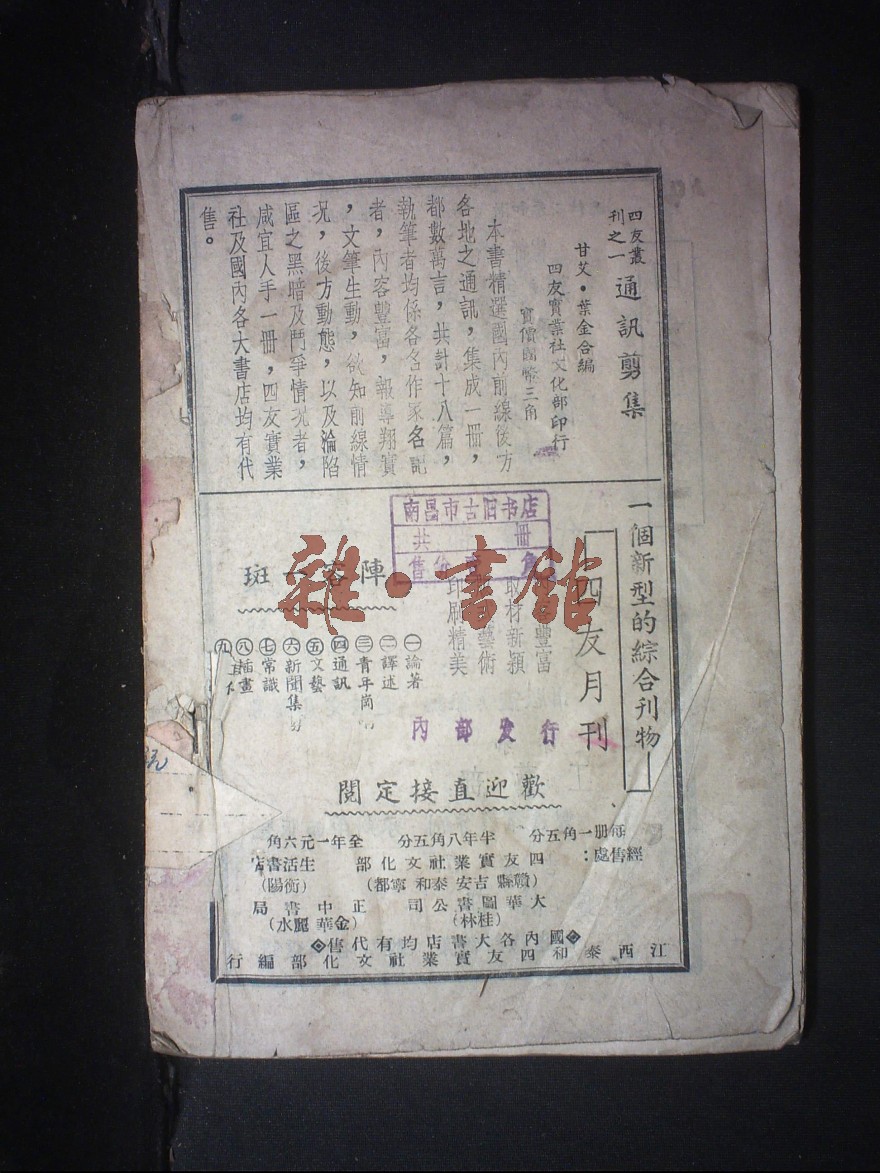 四友叢
刊之一
通訊剪集
甘艾·葉金合編
四友實業社文化部印行
實價國幣三角
本書精選國內前線後方
各地之通訊，集成一冊，
都數萬言，共計十八篇，
執筆者均係各名作家名記
者，內容豐富，報導翔實
，文筆生動，欲知前線情
況，後方動態，以及淪陷
區之黑暗及鬥爭情況者，
咸宜人手一冊，四友實業
社及國內各大書店均有代
售。
一個新型的綜合刊物
四友月刊
豐富
取材新穎
藝術
印刷精美
陣容一斑
㊀論著
㊁譯述
㊂青年崗
㊃通訊
㊄文藝
㊅新聞集
㊆常識
㊇插畫
㊈
歡迎直接定閱
每册一角五分 半年八角五分 全年一元六角
經售處：
四友實業社文化部
(贛縣吉安泰和寧都)
生活書店
(衡陽)
大華圖書公司
(桂林)
正中書局
(金華麗水)
國內各大書店均有代售
江西泰和四友實業社文化部編行
南昌市古旧书店
共 冊
售价 角
內部发行
雜·書館